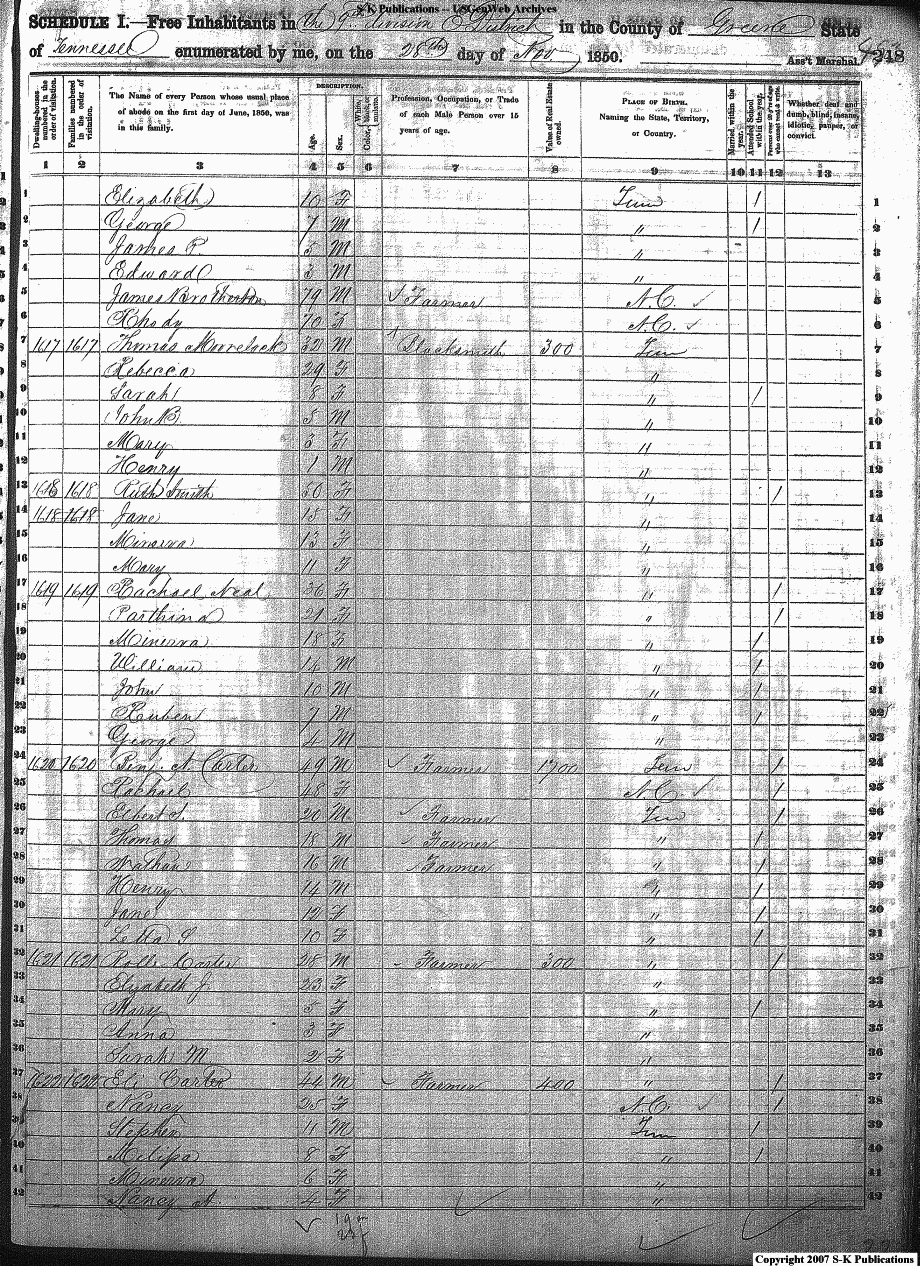 S-K Publications -- USGenWeb Archives
SCHEDULE I.—Free Inhabitants in the 9th division District in the County of Greene State
of Tennessee enumerated by me, on the 28th day of Nov 1850. Ass't Marshal. 248
Dwelling-houses numbered in the order of visitation. Families numbered in the order of visitation. The Name of every Person whose usual place of abode on the first day of June, 1850, was in this family. DESCRIPTION. Age. Sex. Color, White, black, or mulatto. Profession, Occupation, or Trade of each Male Person over 15 years of age. Value of Real Estate owned. PLACE OF BIRTH. Naming the State, Territory, or Country. Married within the year. Attended School within the year. Persons over 20 y'rs of age who cannot read & write. Whether deaf and dumb, blind, insane, idiotic, pauper, or convict.
1 2 3 4 5 6 7 8 9 10 11 12 13
1 Elizabeth 10 F Tenn / 1
2 George 7 M " / 2
3 James P. 5 M " 3
4 Edward 3 M " 4
5 James Brotherton 79 M ✓ Farmer N.C. ✓ 5
6 Rhody 70 F N.C. ✓ 6
7 1617 1617 Thomas 32 M Blacksmith 300 Tenn 7
8 Rebecca 29 F " 8
9 Sarah 8 F " / 9
10 John B. 5 M " 10
11 Mary 3 F " 11
12 Henry 1 M " 12
13 1618 1618 Ruth Smith 50 F " / 13
14 1618 1618 Jane 18 F " 14
15 Minerva 13 F " 15
16 Mary 11 F " 16
17 1619 1619 Rachael Neal 36 F " / 17
18 Parthina 21 F " / 18
19 Minerva 18 F " / 19
20 William 14 M " / 20
21 John 10 M " / 21
22 Reuben 7 M " / 22
23 George 4 M " 23
24 1620 1620 Benj. A Carter 49 M ✓ Farmer 1700 Tenn / 24
25 Rachael 48 F N.C. ✓ / 25
26 Elbert S. 20 M ✓ Farmer Tenn / 26
27 Thomas 18 M ✓ Farmer " / 27
28 Nathan 16 M Farmer " / 28
29 Henry 14 M " / 29
30 Jane 12 F " / 30
31 Letta S 10 F " / 31
32 1621 1621 Rolls Carter 28 M - Farmer 300 " / 32
33 Elizabeth J. 23 F " 33
34 Mary 5 F " / 34
35 Anna 3 F " 35
36 Sarah M 2 F " 36
37 1622 1622 Eli Carter 44 M ✓ Farmer 400 " / 37
38 Nancy 25 F N.C. ✓ / 38
39 Stephen 11 M Tenn / 39
40 Melissa 8 F " / 40
41 Minerva 6 F " 41
42 Nancy A. 4 F " 42
Copyright 2007 S-K Publications